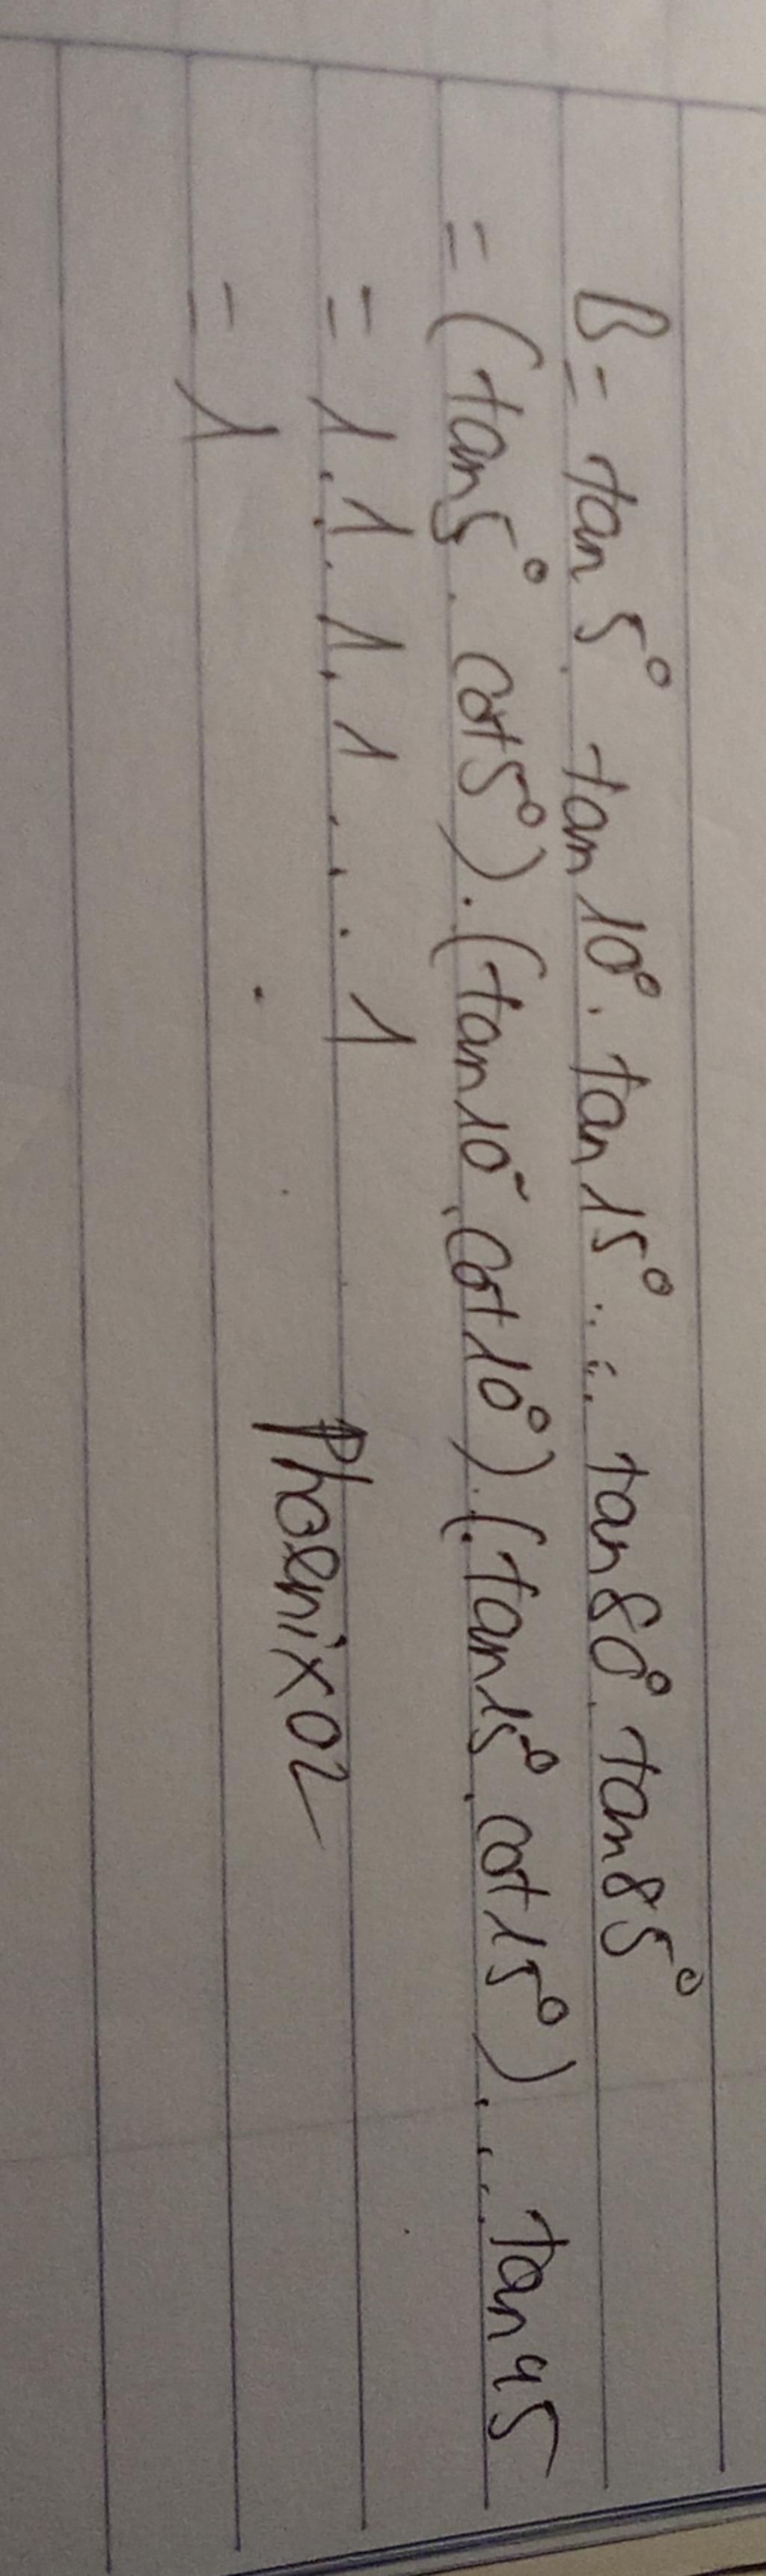 B = tan 5° . tan 10° . tan 15° ..... tan 80° . tan 85°
= (tan 5° . cot 5°) . (tan 10° . cot 10°) . (tan 15° . cot 15°) ... tan 45
= 1 . 1 . 1 . 1 ... 1
= 1
Phoenix02